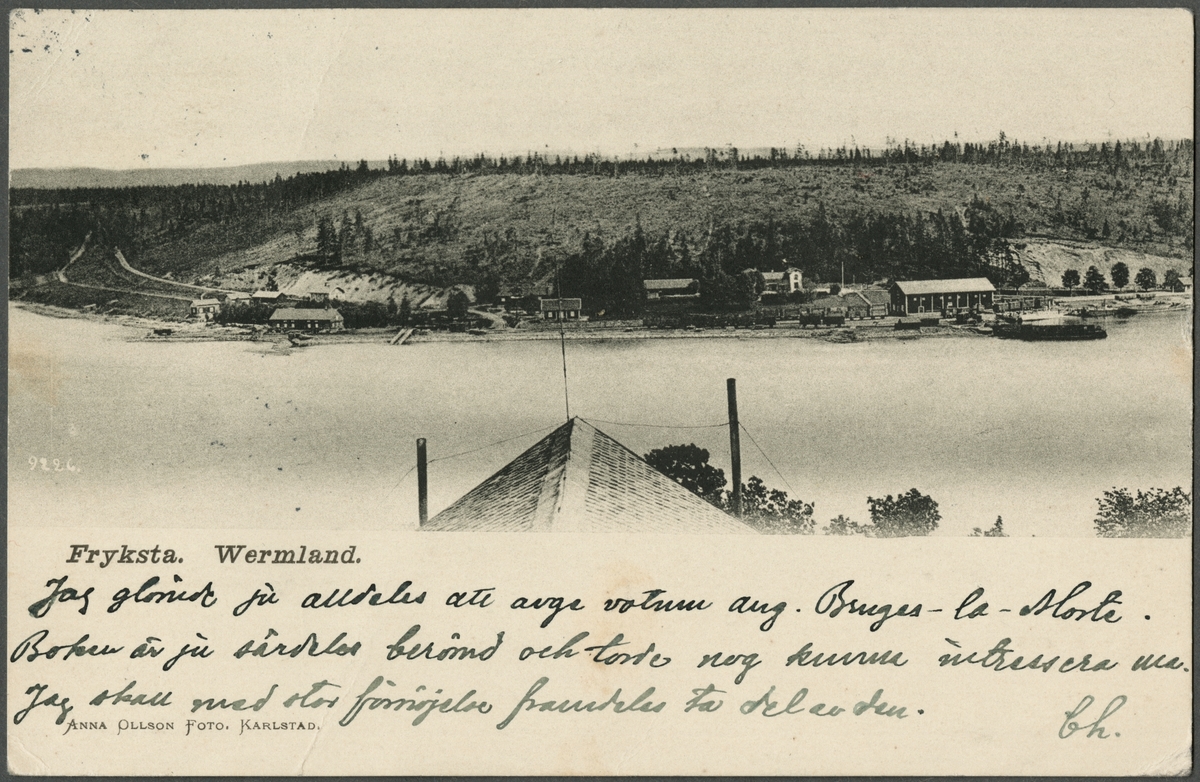 9226.
Fryksta. Wermland.
Jag glömde ju alldeles att avge votum ang. Bruges-la-Morte.
Boken är ju särdeles berömd och torde nog kunna intressera
Jag skall med stor förnöjelse framdeles ta del av den.
Ch.
Anna Ollson Foto. Karlstad.